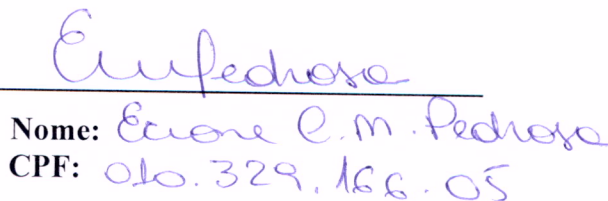 Empedrosa
Nome: Ecione C. M. Pedrosa
CPF: 010.329.166-05